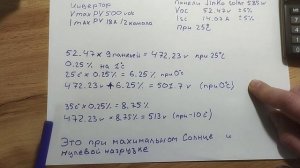 Инвертор
Vmax PV 500 vdc
Imax PV 18A / 2 канала
Панели Jinko Solar 585 w
Voc 52.47 v ±5%
Isc 14.07 A ±5%
При 25°C
52.47 × 9 панелей = 472.23 v при 25°C
0.25 % на 1°C
25°C × 0.25% = 6.25 % при 0°C
472.23 v + 6.25% = 501.7 v (при 0°C)
35°C × 0.25% = 8.75%
472.23 v × 8.75% = 513 v (при -10°C)
Это при максимальном Солнце и
нулевой нагрузке